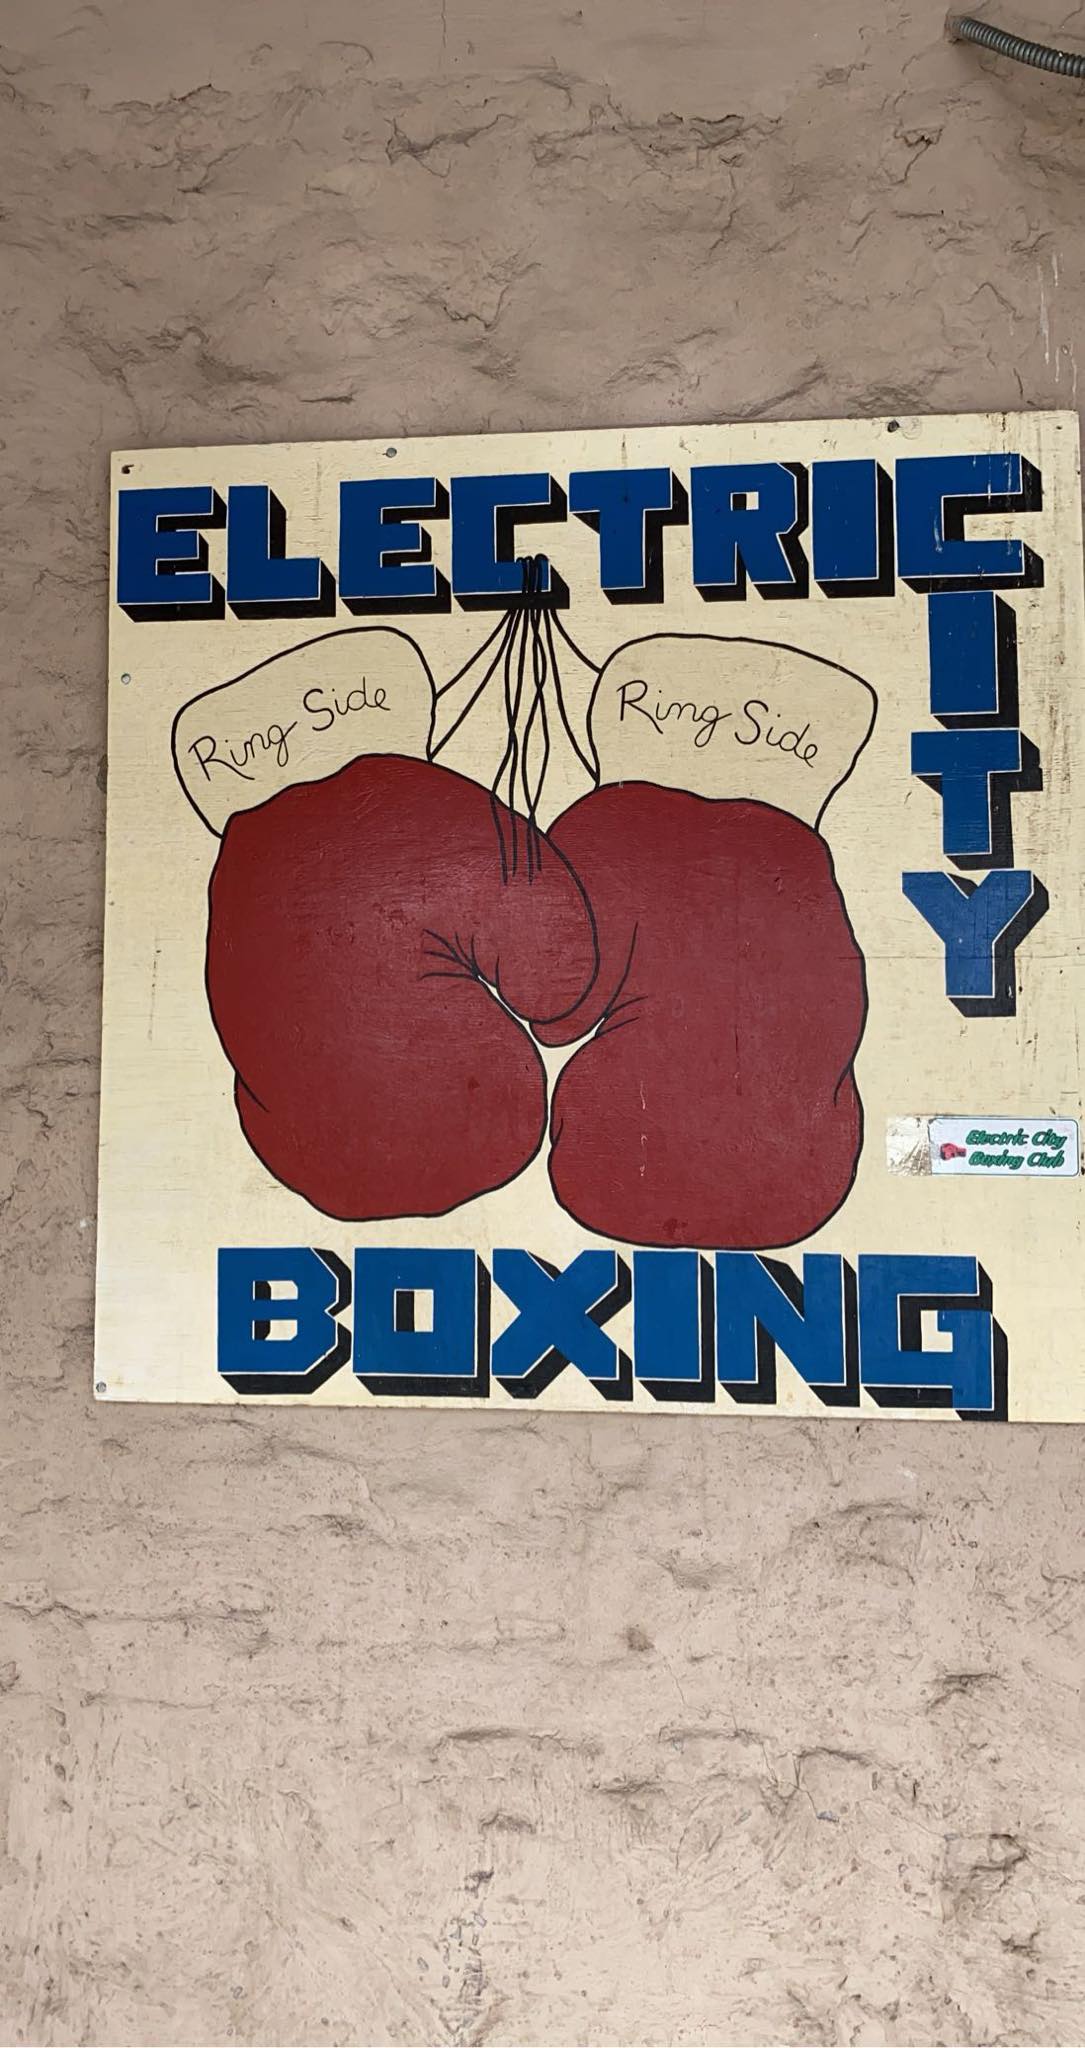 ELECTRIC
CITY
Ring Side
Ring Side
Electric City
Boxing Club
BOXING